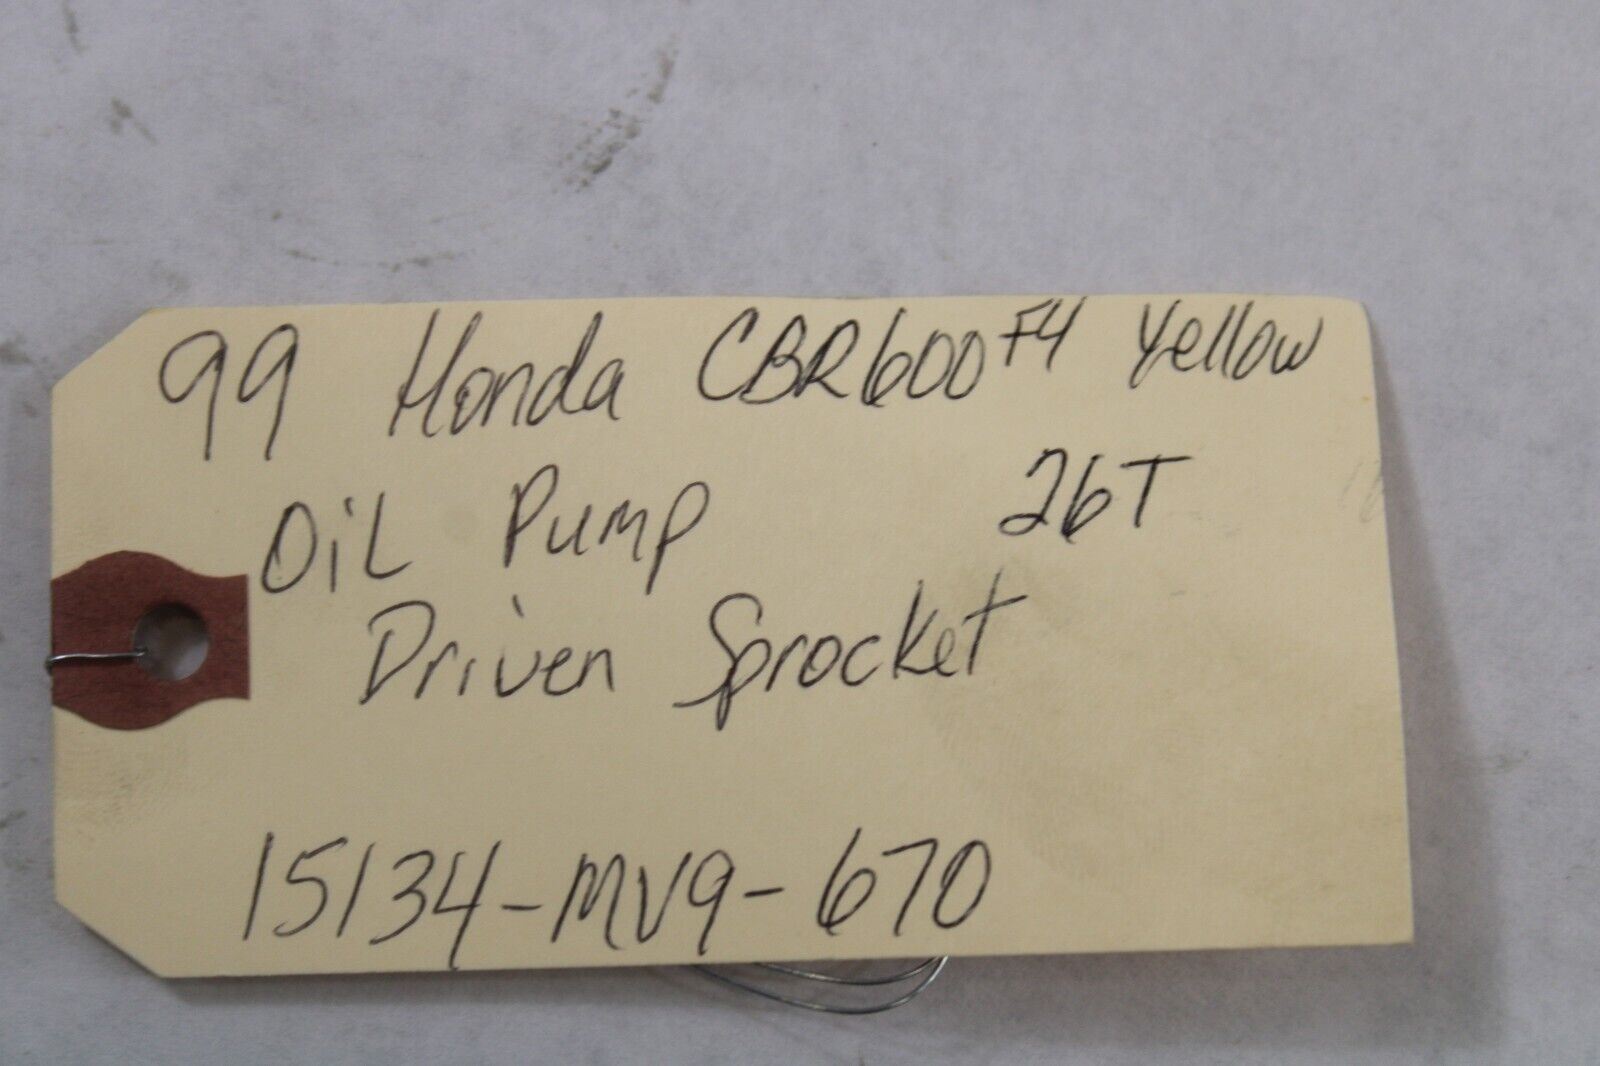 99 Honda CBR600F4 Yellow
OiL Pump 26T
Driven Sprocket
15134-MV9-670